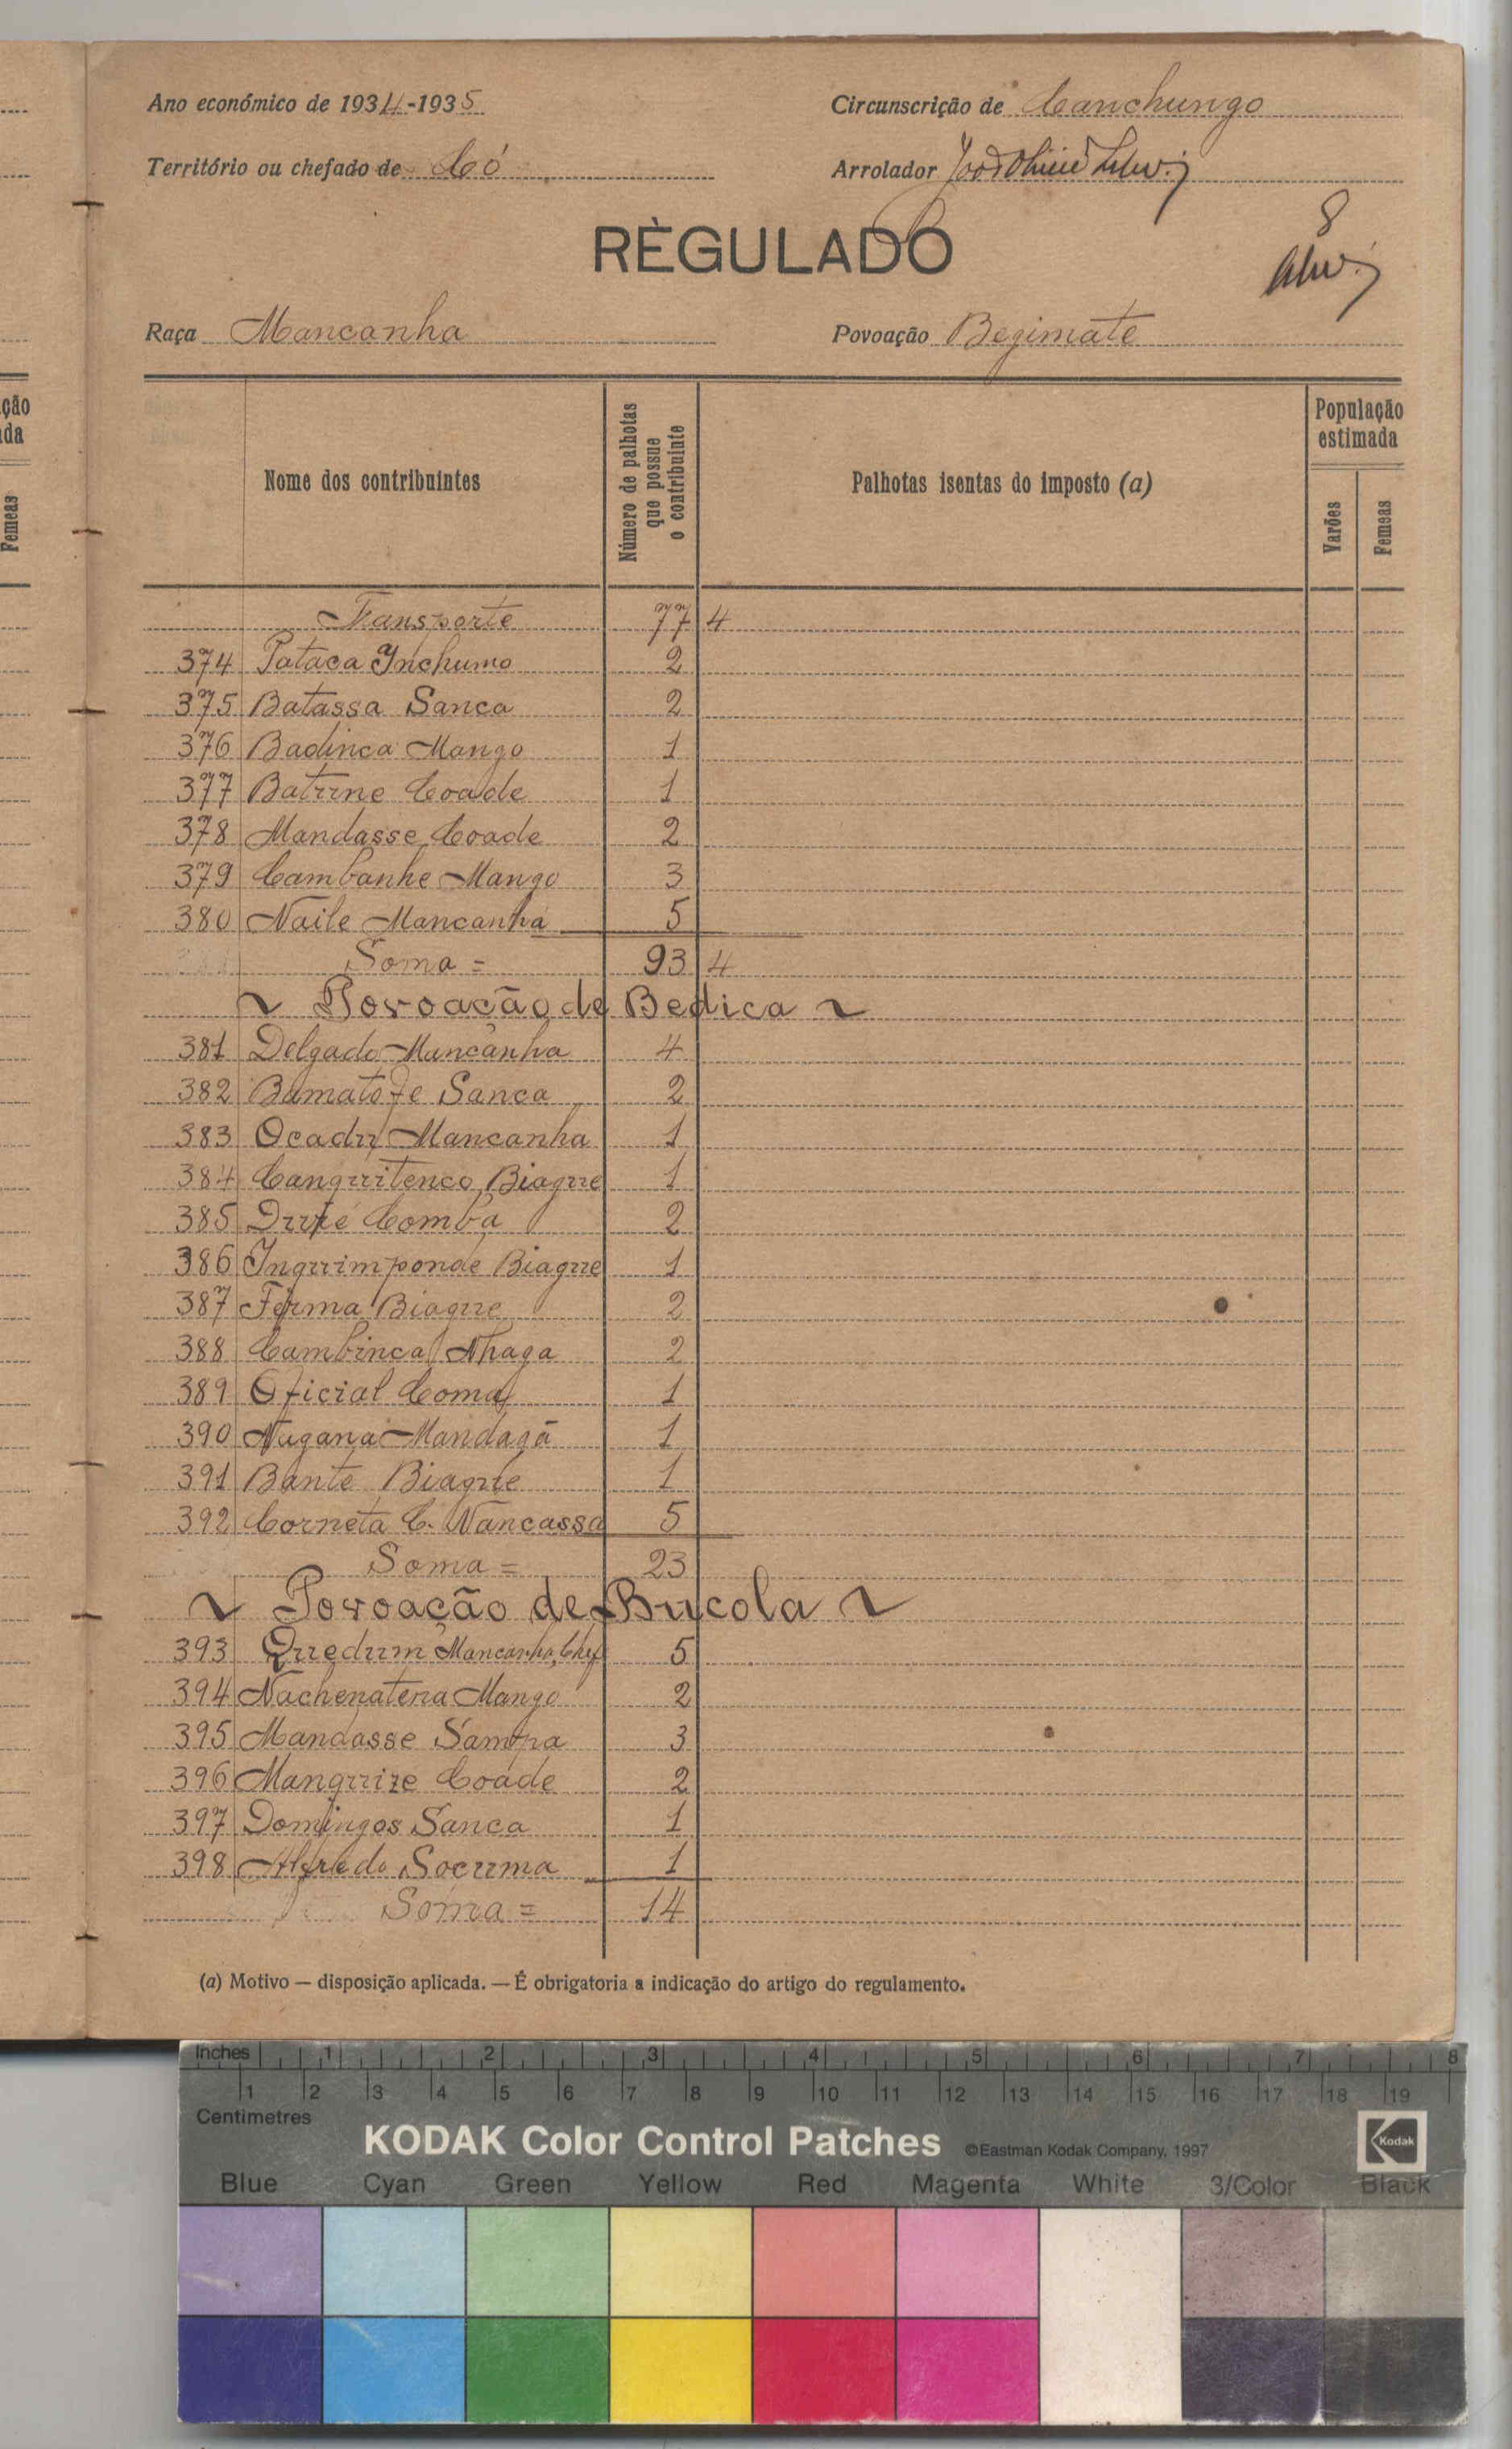 Ano económico de 1934-1935
Circunscrição de Canchungo
Território ou chefado de Có
Arrolador
RÈGULADO
8
Raça Mancanha
Povoação Begimate
Nome dos contribuintes
Número de palhotas que possue o contribuinte
Palhotas isentas do imposto (a)
População estimada
Varões
Femeas
ção
da
Femeas
Transporte 77 4
374 Pataca Inchumo 2
375 Batassa Sanca 2
376 Badinca Mango 1
377 Batune Coade 1
378 Mandasse Coade 2
379 Cambanhe Mango 3
380 Naile Mancanha 5
Soma = 93 4
~ Povoação de Bedica ~
381 Delgado Mancanha 4
382 Bamatofe Sanca 2
383 Ocadu Mancanha 1
384 Canquitenco Biague 1
385 Comba 2
386 Inquimponde Biague 1
387 Ferma Biague 2
388 Cambinca Nhaga 2
389 Oficial Coma 1
390 Nagana Mandagã 1
391 Bante Biague 1
392 Corneta C. Nancassa 5
Soma = 23
~ Povoação de Bucola ~
393 Quedum Mancanha, Chef 5
394 Nachenatena Mango 2
395 Mandasse Sampa 3
396 Manguize Coade 2
397 Domingos Sanca 1
398 Alfredo Socuma 1
Soma = 14
(a) Motivo — disposição aplicada. — É obrigatoria a indicação do artigo do regulamento.
Inches 1 2 3 4 5 6 7 8
1 2 3 4 5 6 7 8 9 10 11 12 13 14 15 16 17 18 19
Centimetres
KODAK Color Control Patches ©Eastman Kodak Company, 1997 Kodak
Blue Cyan Green Yellow Red Magenta White 3/Color Black